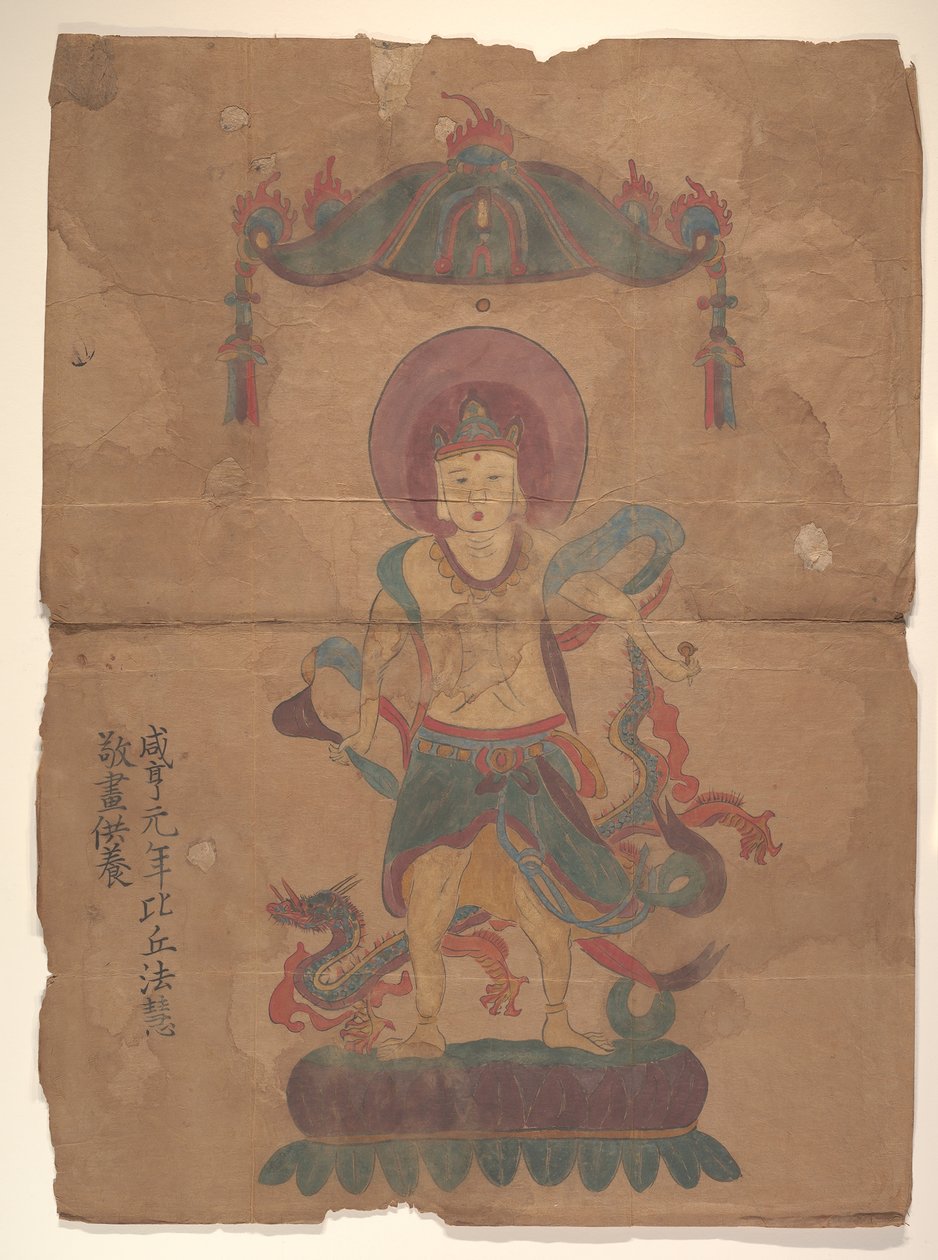 咸亨元年比丘法慧
敬畫供養